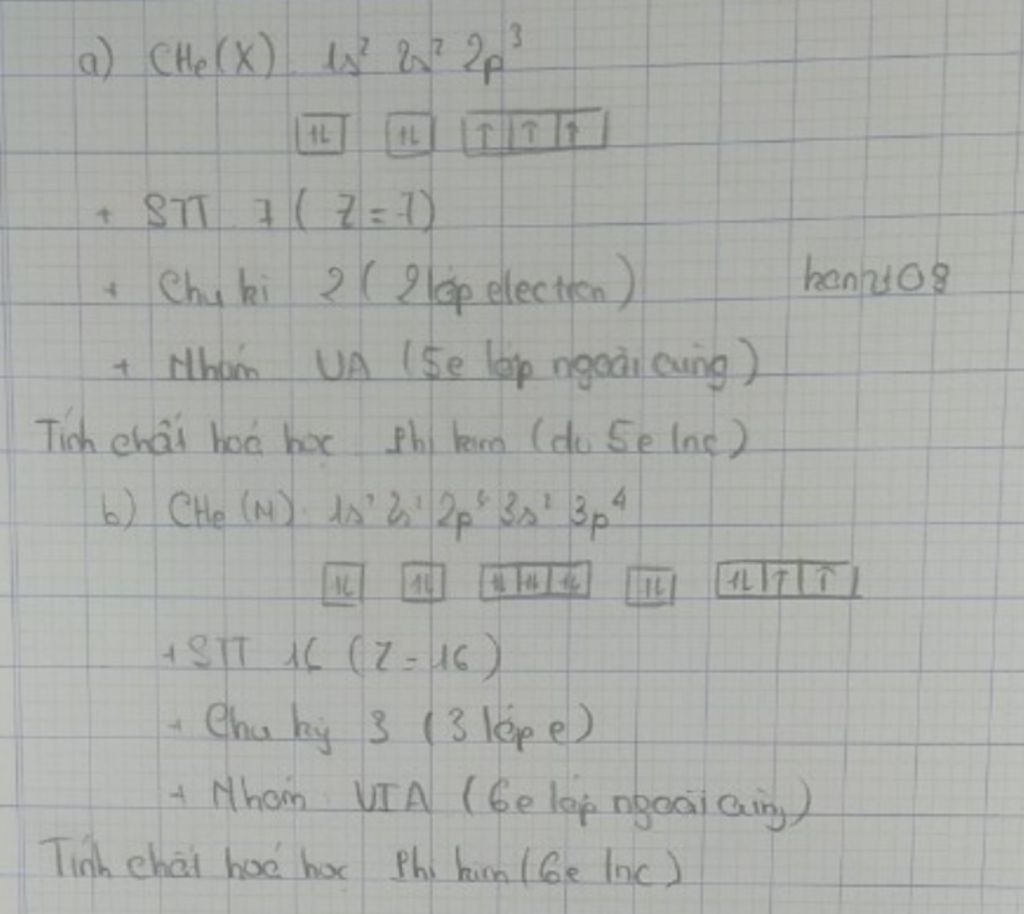 a) CHe(X) 1s² 2s² 2p³
↑↓ ↑↓ ↑ ↑ ↑
+ STT 7 ( Z = 7)
+ Chu kì 2 ( 2 lớp electron)
hanzy08
+ Nhóm VA (5e lớp ngoài cùng)
Tính chất hoá học phi kim (do 5e lnc)
b) CHe (M) 1s² 2s² 2p⁶ 3s² 3p⁴
↑↓ ↑↓ ↑↓ ↑↓ ↑↓ ↑↓ ↑↓ ↑ ↑
+ STT 16 (Z = 16)
+ Chu kỳ 3 (3 lớp e)
+ Nhóm VIA (6e lớp ngoài cùng)
Tính chất hoá học Phi kim (6e lnc)